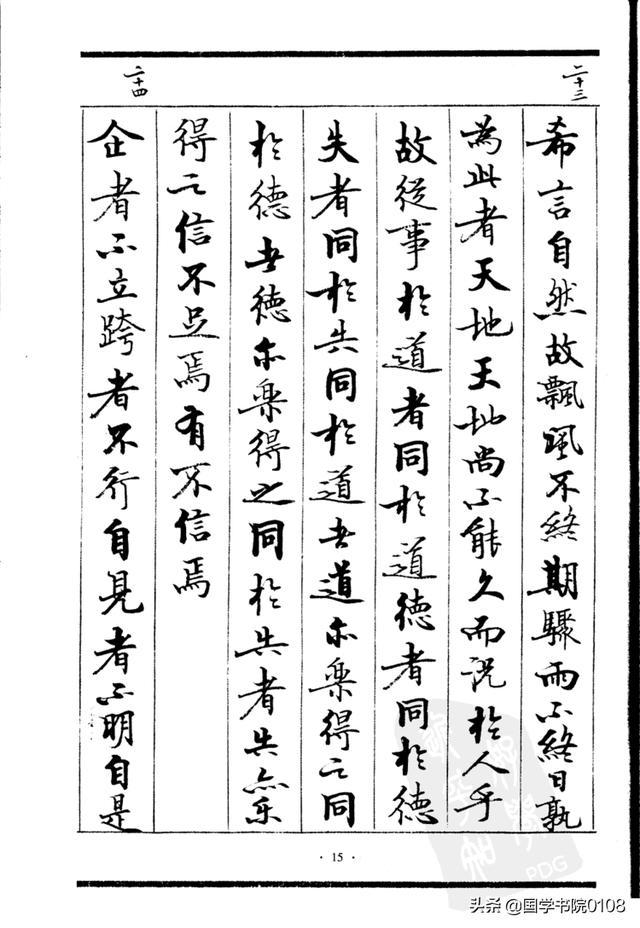 二十三
希言自然故飄風不終期驟雨不終日孰
為此者天地天地尚不能久而況於人乎
故從事於道者同於道德者同於德
失者同於失同於道者道亦樂得之同
於德者德亦樂得之同於失者失亦樂
得之信不足焉有不信焉
二十四
企者不立跨者不行自見者不明自是
· 15 ·
PDG
头条 @国学书院0108